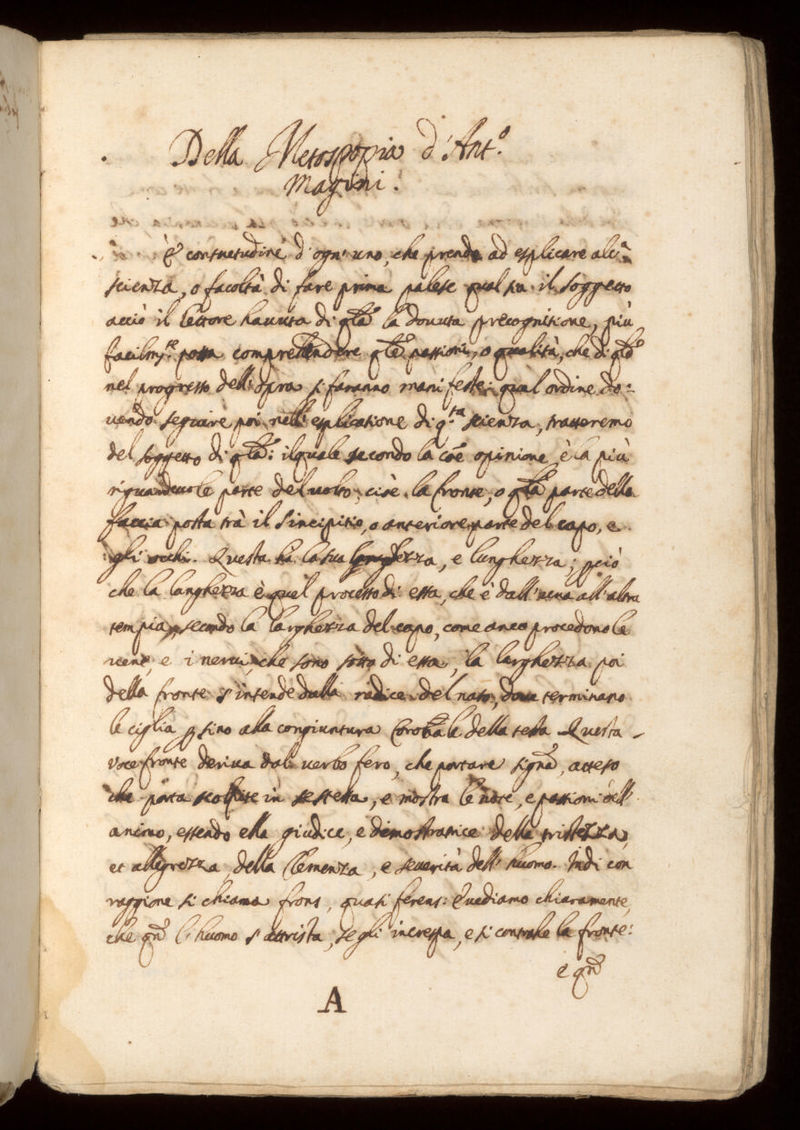 Della Metospopia d'Ant.º
Magini.
È consuetudine d'ogn'uno, che prende ad esplicare alc.ª
scienza, o facoltà di fare prima palese qual sia il soggetto
acciò il lettore havuta di qlã la dovuta precognitione, più
facilm.te possa comprehendere qlẽ passioni, o qualità, che di qlõ
nel progresso dell'opra si faranno manifeste: qual ordine do:
uendo seguire poi nell'esplicatione di q.sta scienza, tratteremo
del soggetto di qlã: il quale secondo la coẽ opinione è la più
riguardeuole parte del uolto, cioè la fronte, o qlã parte della
faccia posta trà il sincipitio, o anteriore parte del capo, e
gli occhi. Questa ha la sua larghezza, e lunghezza; pciò
che la langhezza è quel processo di essa, che è dall'una all'altra
tempia, secondo la larghezza del capo, come anco procedono le
uene, e i nerui, che sono sotto di essa, la larghezza poi
della fronte s'intende dalla radice del naso, doue terminano
le ciglia p sino alla congiuntura Coronale della testa. Questa
voce fronte deriua dal uerbo fero, che portare signã, atteso
che porta scolpite in se stessa, e mostra le note, e passioni dell'
animo, essendo ella giudice, e dimostratrice della tristezza,
et allegrezza della Clemenza, e seuerità dell'huomo. Indi con
raggione si chiama frons, quasi ferens: E uediamo chiaramente,
che qñ l'huomo s'attrista, se gli increspa, e si contrahe la fronte:
e qñ
A